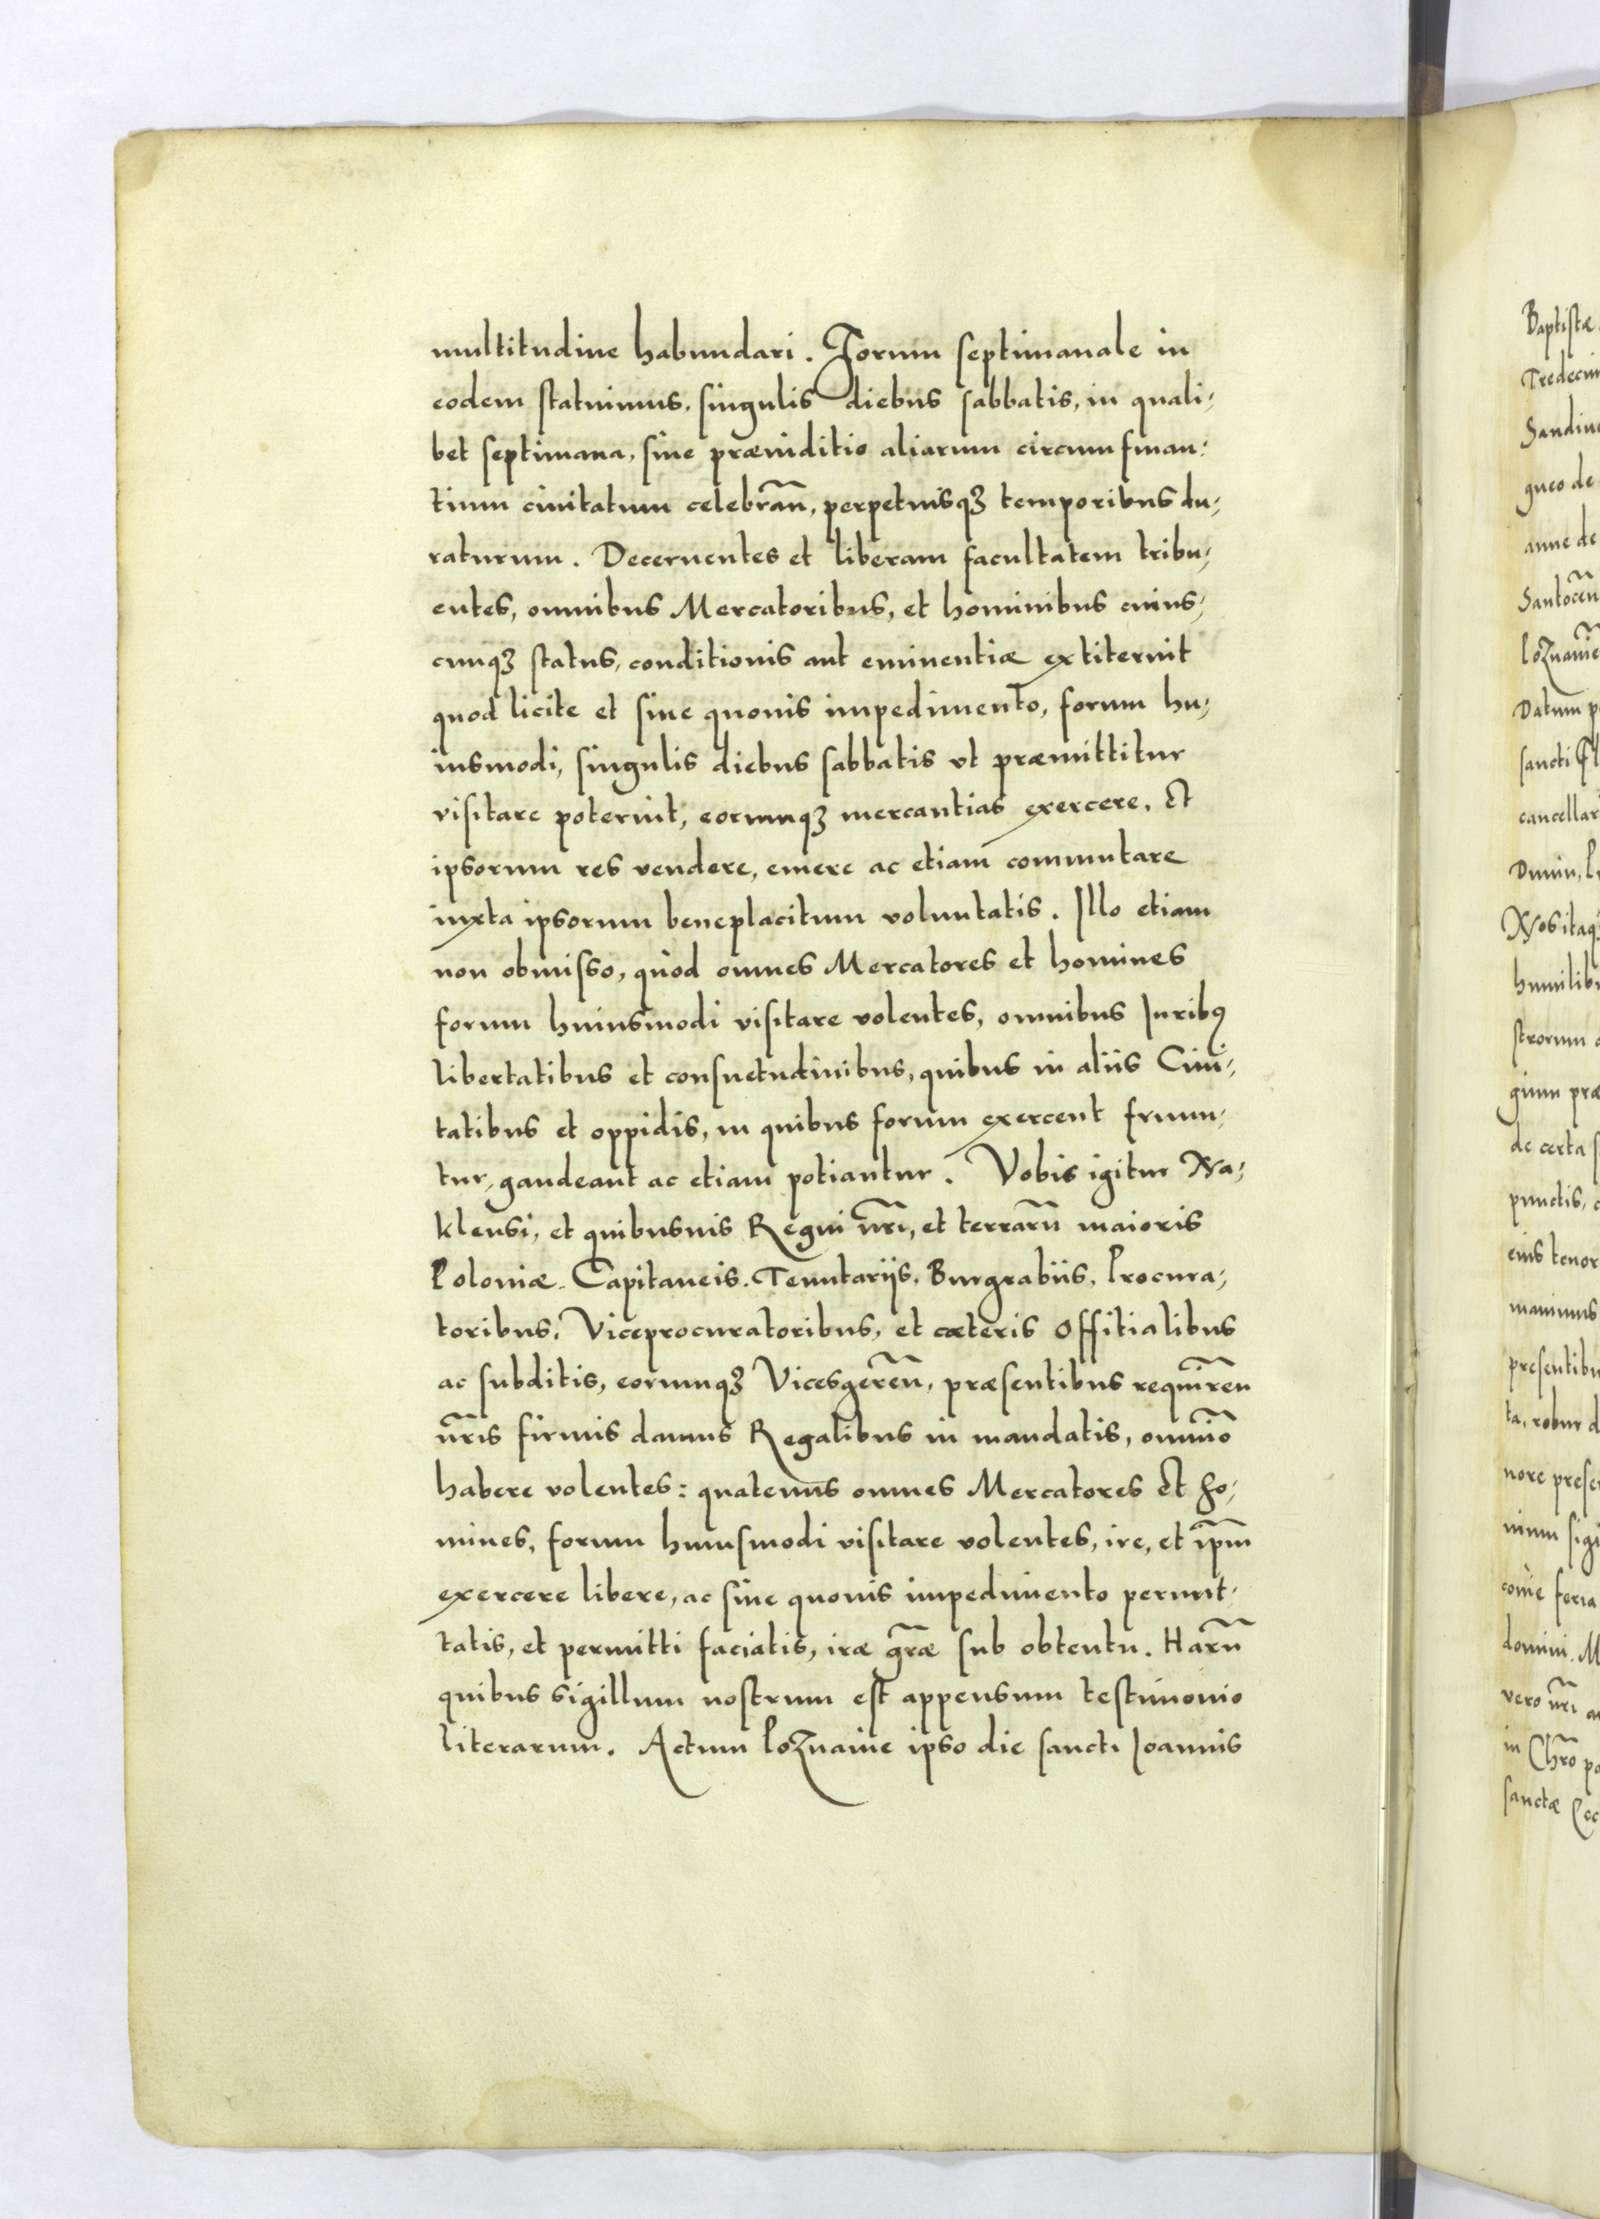 multitudine habundari. Forum septimanale in
eodem statuimus, singulis diebus sabbatis, in quali-
bet septimana, sine præiuditio aliarum circumsman-
tium ciuitatum celebrañ, perpetuisqꝫ temporibus du-
raturum. Decernentes et liberam facultatem tribu-
entes, omnibus Mercatoribus, et hominibus cuius-
cunqꝫ status, conditionis aut eminentiæ extiterint
quod licite et sine quouis impedimento, forum hu-
iusmodi, singulis diebus sabbatis vt præmittitur
visitare poterint, eorumqꝫ mercantias exercere, et
ipsorum res vendere, emere ac etiam commutare
iuxta ipsorum beneplacitum voluntatis. Illo etiam
non obmisso, quòd omnes Mercatores et homines
forum huiusmodi visitare volentes, omnibus Iuribꝰ
libertatibus et consuetudinibus, quibus in aliis Ciui-
tatibus et oppidis, in quibus forum exercent fruun-
tur, gaudeant ac etiam potiantur. Vobis igitur Na-
klensi, et quibusuis Regni nr̃i, et terrarũ maioris
Poloniæ Capitaneis. Tenutarijs. Burgrabiis. Procura-
toribus. Viceprocuratoribus, et cæteris Offitialibus
ac subditis, eorumqꝫ Vicesgereñ, præsentibus requireñ
nr̃is firmis damus Regalibus in mandatis, omnĩo
habere volentes: quatenus omnes Mercatores et ho-
mines, forum huiusmodi visitare volentes, ire, et ip̃m
exercere libere, ac sine quouis impedimento permit-
tatis, et permitti faciatis, iræ gr̃æ sub obtentu. Harũ
quibus sigillum nostrum est appensum testimonio
literarum. Actum Poznaniæ ipso die sancti Joannis
Baptistæ
Sandiuo
gneo de
anne de
Datum
sancti
cancellar
Nos itaqꝫ
strorum
gium præ
de certa
punctis,
eius tenor
ta, robur
nore
feria
domini. M
vero nr̃i
in Chr̃o
sanctæ